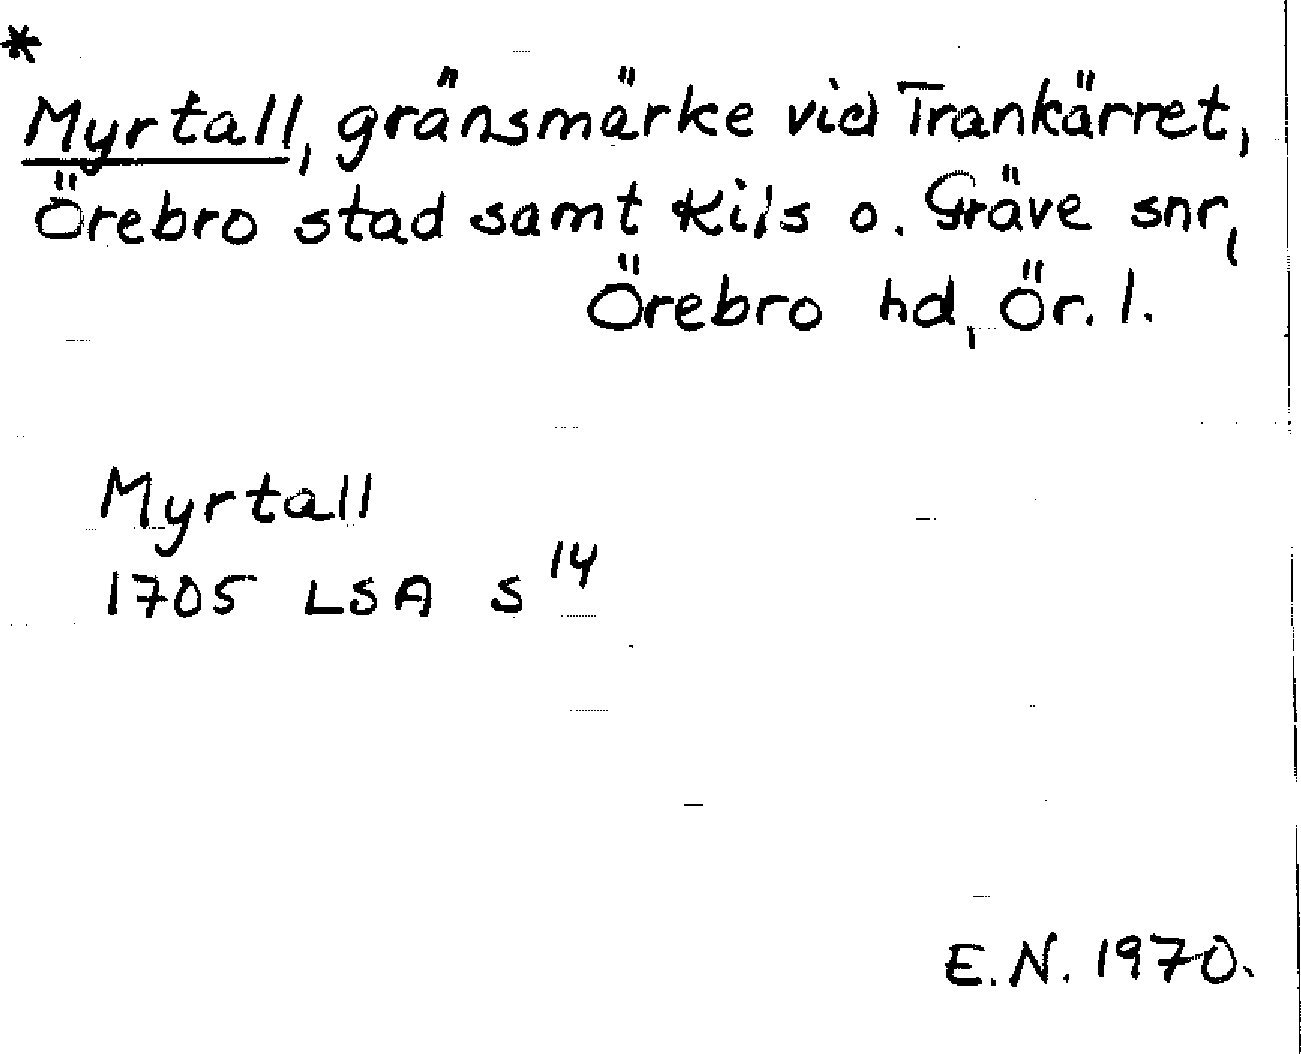 *
Myrtall, gränsmärke vid Trankärret,
Örebro stad samt Kils o. Gräve snr,
Örebro hd, Ör. l.
Myrtall
1705 LSA S 14
E.N. 1970.